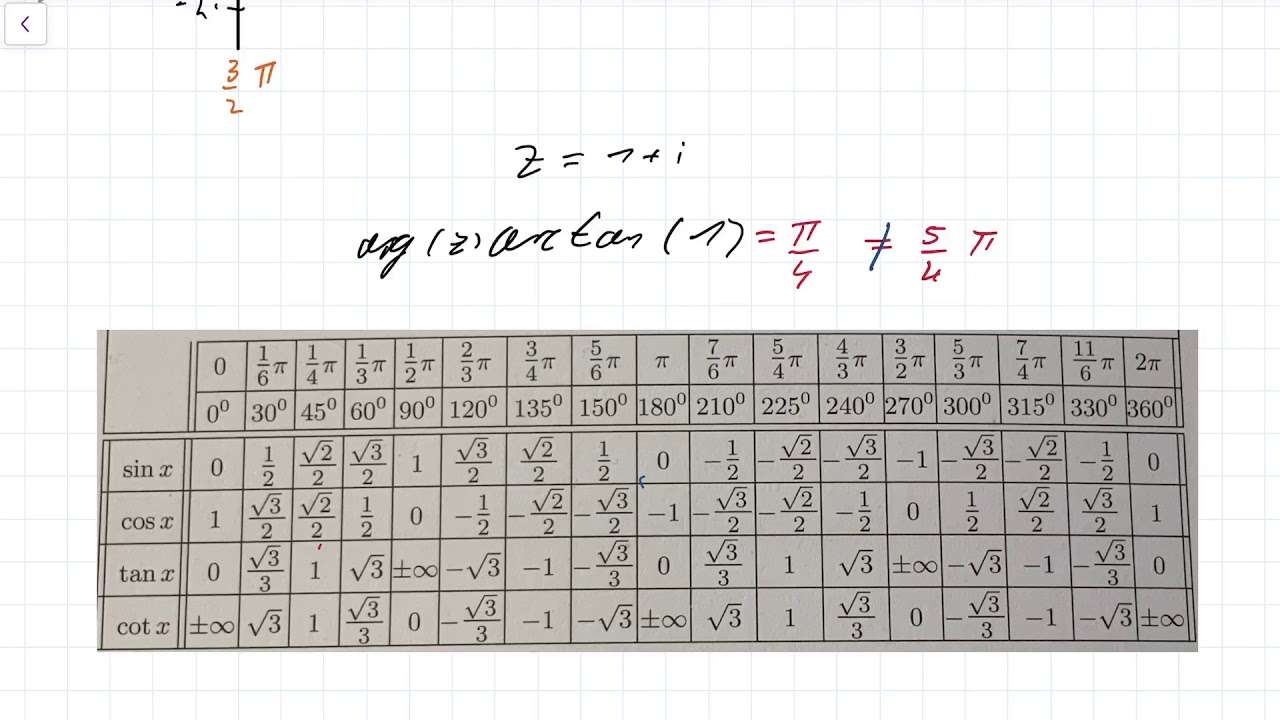 -2i
3/2 π
z = 1 + i
arg(z) arctan(1) = π/4 ≠ 5/4 π
0 1/6π 1/4π 1/3π 1/2π 2/3π 3/4π 5/6π π 7/6π 5/4π 4/3π 3/2π 5/3π 7/4π 11/6π 2π
0⁰ 30⁰ 45⁰ 60⁰ 90⁰ 120⁰ 135⁰ 150⁰ 180⁰ 210⁰ 225⁰ 240⁰ 270⁰ 300⁰ 315⁰ 330⁰ 360⁰
sin x 0 1/2 √2/2 √3/2 1 √3/2 √2/2 1/2 0 −1/2 −√2/2 −√3/2 −1 −√3/2 −√2/2 −1/2 0
cos x 1 √3/2 √2/2 1/2 0 −1/2 −√2/2 −√3/2 −1 −√3/2 −√2/2 −1/2 0 1/2 √2/2 √3/2 1
tan x 0 √3/3 1 √3 ±∞ −√3 −1 −√3/3 0 √3/3 1 √3 ±∞ −√3 −1 −√3/3 0
cot x ±∞ √3 1 √3/3 0 −√3/3 −1 −√3 ±∞ √3 1 √3/3 0 −√3/3 −1 −√3 ±∞